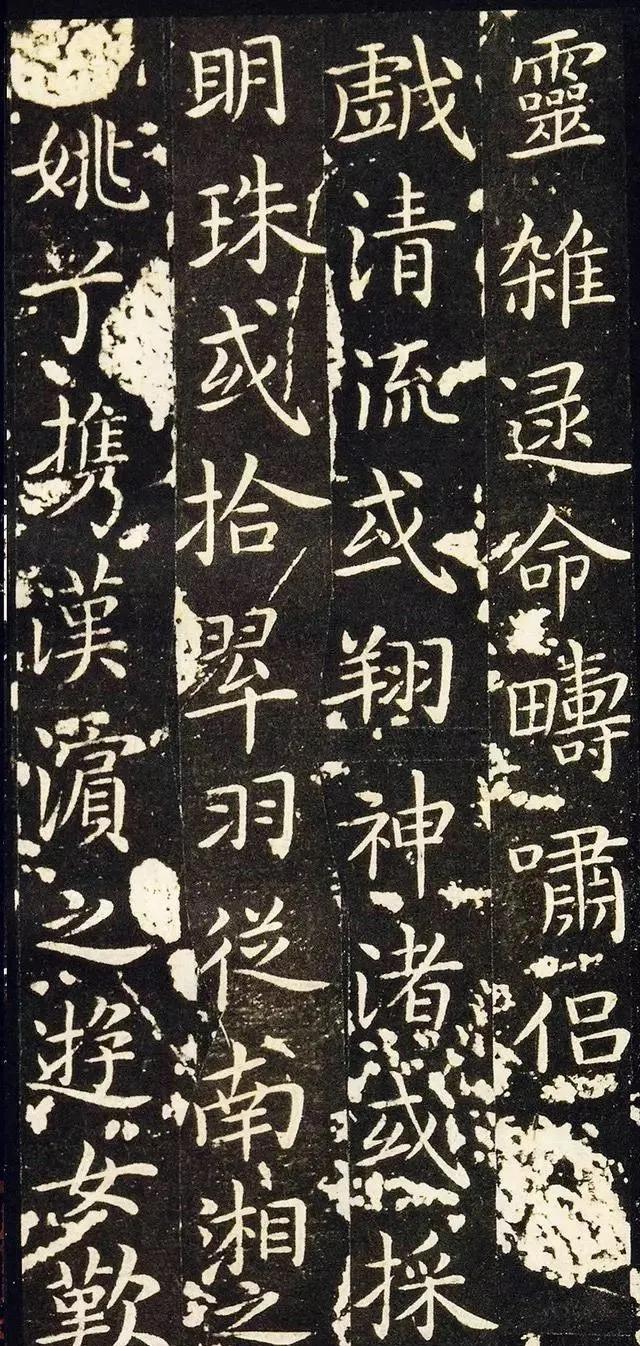 靈雜遝命疇嘯侶
戲清流或翔神渚或採
明珠或拾翠羽從南湘之
姚携漢濱之遊女歎